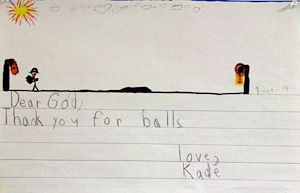 Dear God,
Thank you for balls
love,
Kade